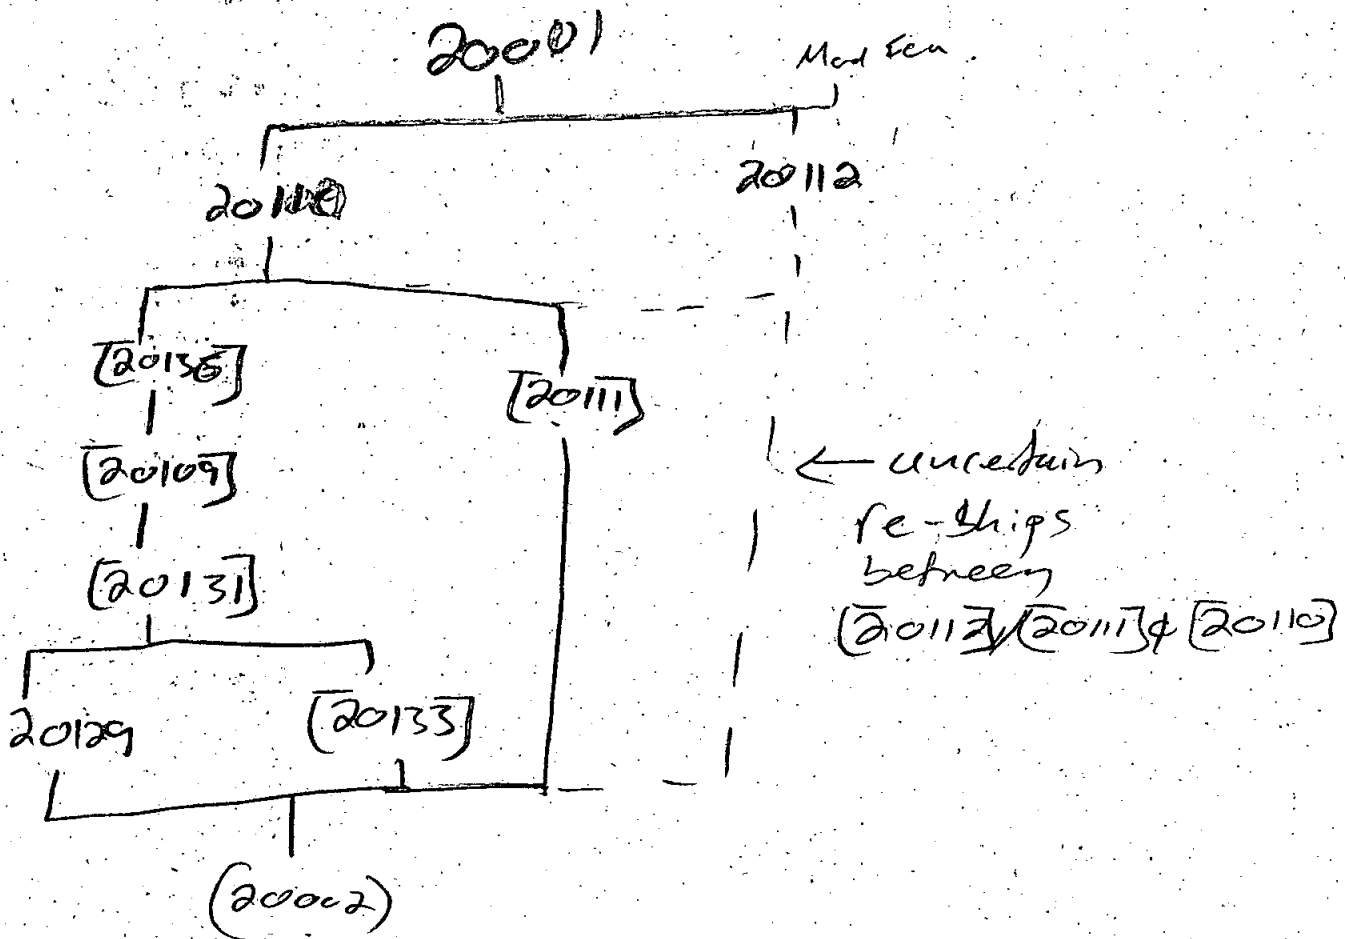 20001
20112
20110
[20136]
[20111]
[20109]
[20131]
← uncertain
re-ships
between
[20112]/[20111] & [20110]
20129
[20133]
(20002)